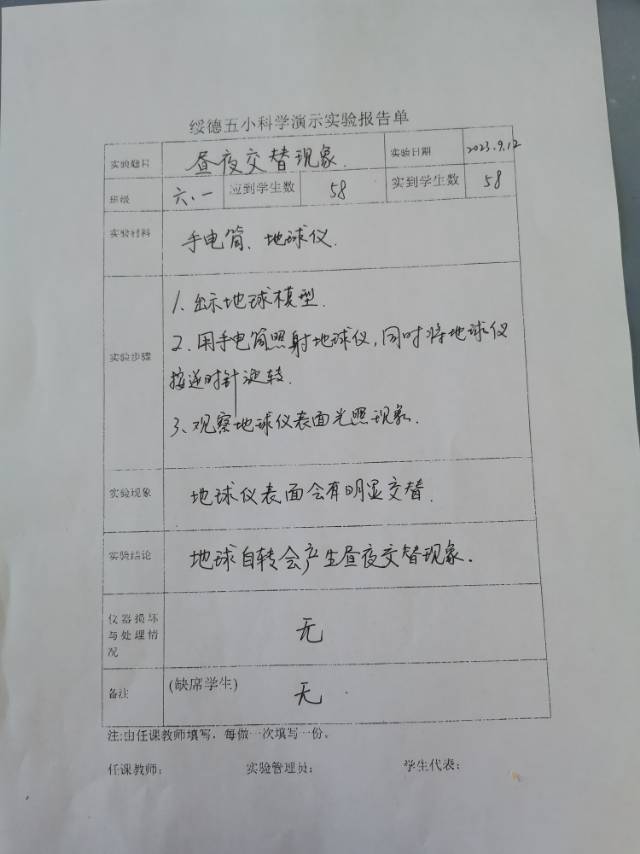 绥德五小科学演示实验报告单
实验题目 昼夜交替现象. 实验日期 2023.9.12
班级 六.一 应到学生数 58 实到学生数 58
实验材料 手电筒、地球仪.
实验步骤
1. 出示地球模型.
2. 用手电筒照射地球仪,同时将地球仪
按逆时针旋转.
3、观察地球仪表面光照现象.
实验现象 地球仪表面会有明显交替.
实验结论 地球自转会产生昼夜交替现象.
仪器损坏
与处理情
况
无
备注 (缺席学生) 无
注:由任课教师填写,每做一次填写一份。
任课教师: 实验管理员: 学生代表: